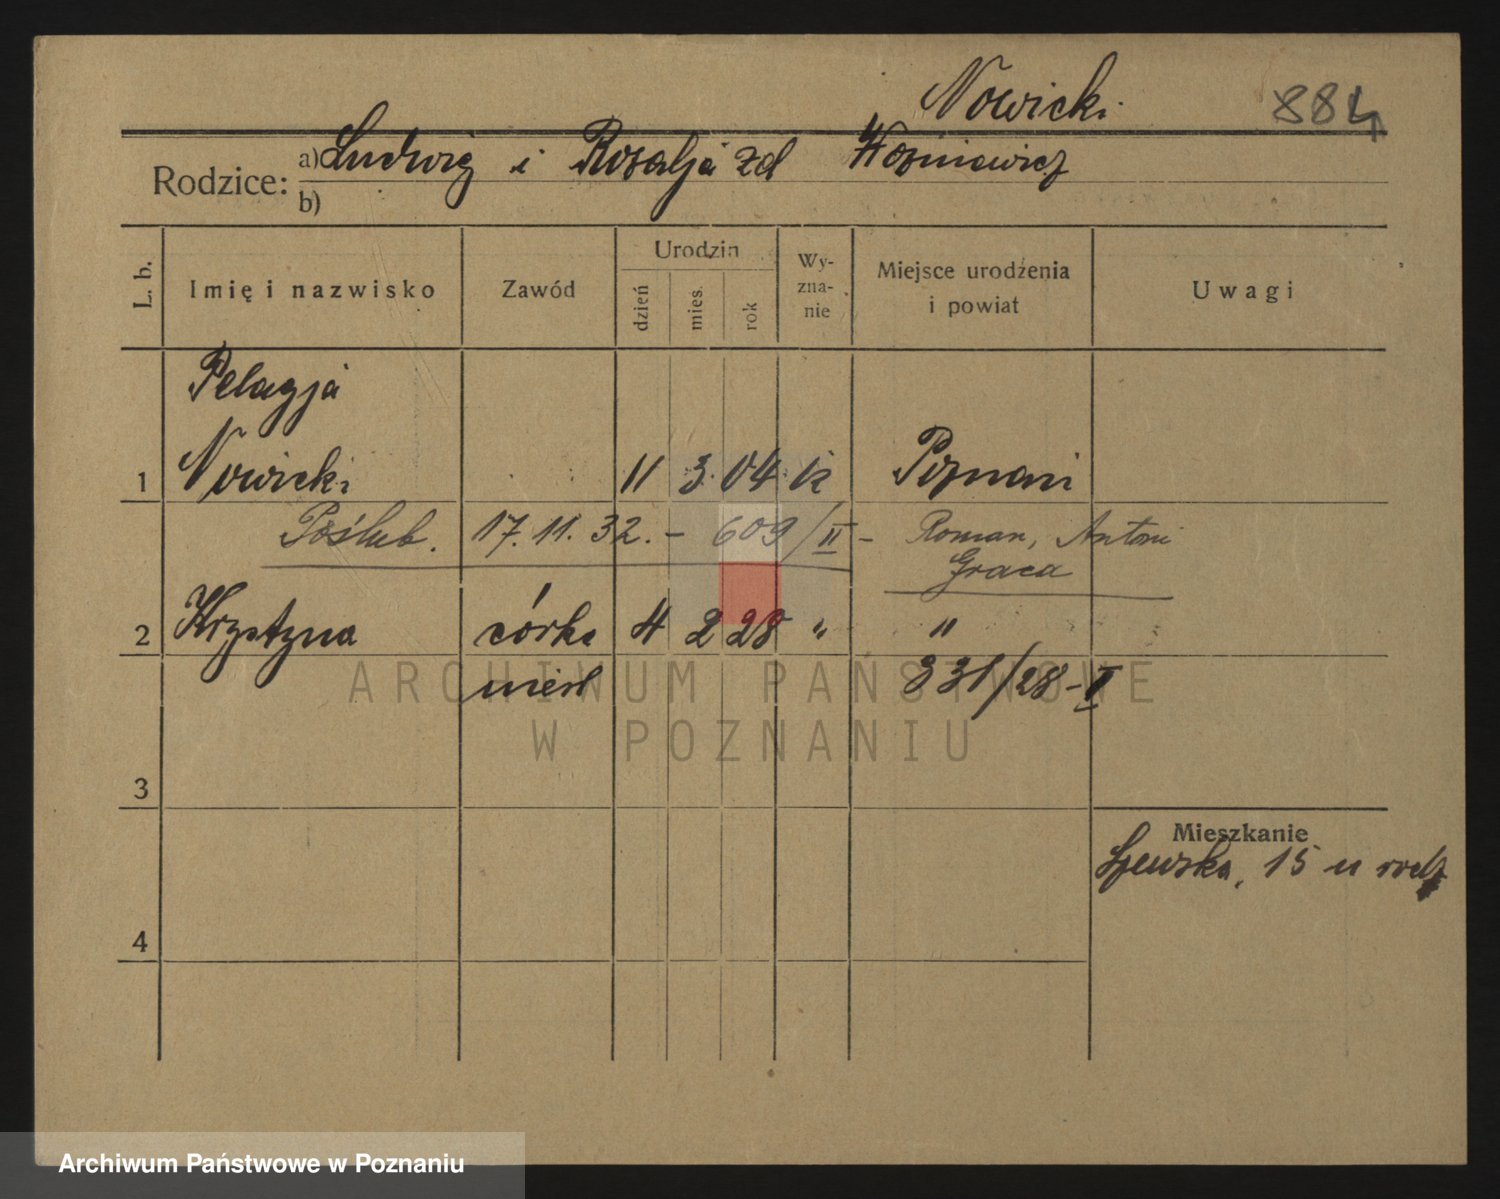 Nowicki
884
Rodzice: a) Ludwig i Rosalja zd Woźniewicz
b)
L. b. Imię i nazwisko Zawód Urodzin dzień mies. rok Wyznanie Miejsce urodzenia i powiat Uwagi
Pelagja
1 Nowicki 11 3. 04 k Poznań
Poślub. 17.11.32. - 609/II - Roman, Antoni
Graca
2 Krystyna córka 4 2 28 " "
nieśl 331/28-II
ARCHIWUM PAŃSTWOWE
W POZNANIU
3
Mieszkanie
Szewska, 15 u rodz
4
Archiwum Państwowe w Poznaniu